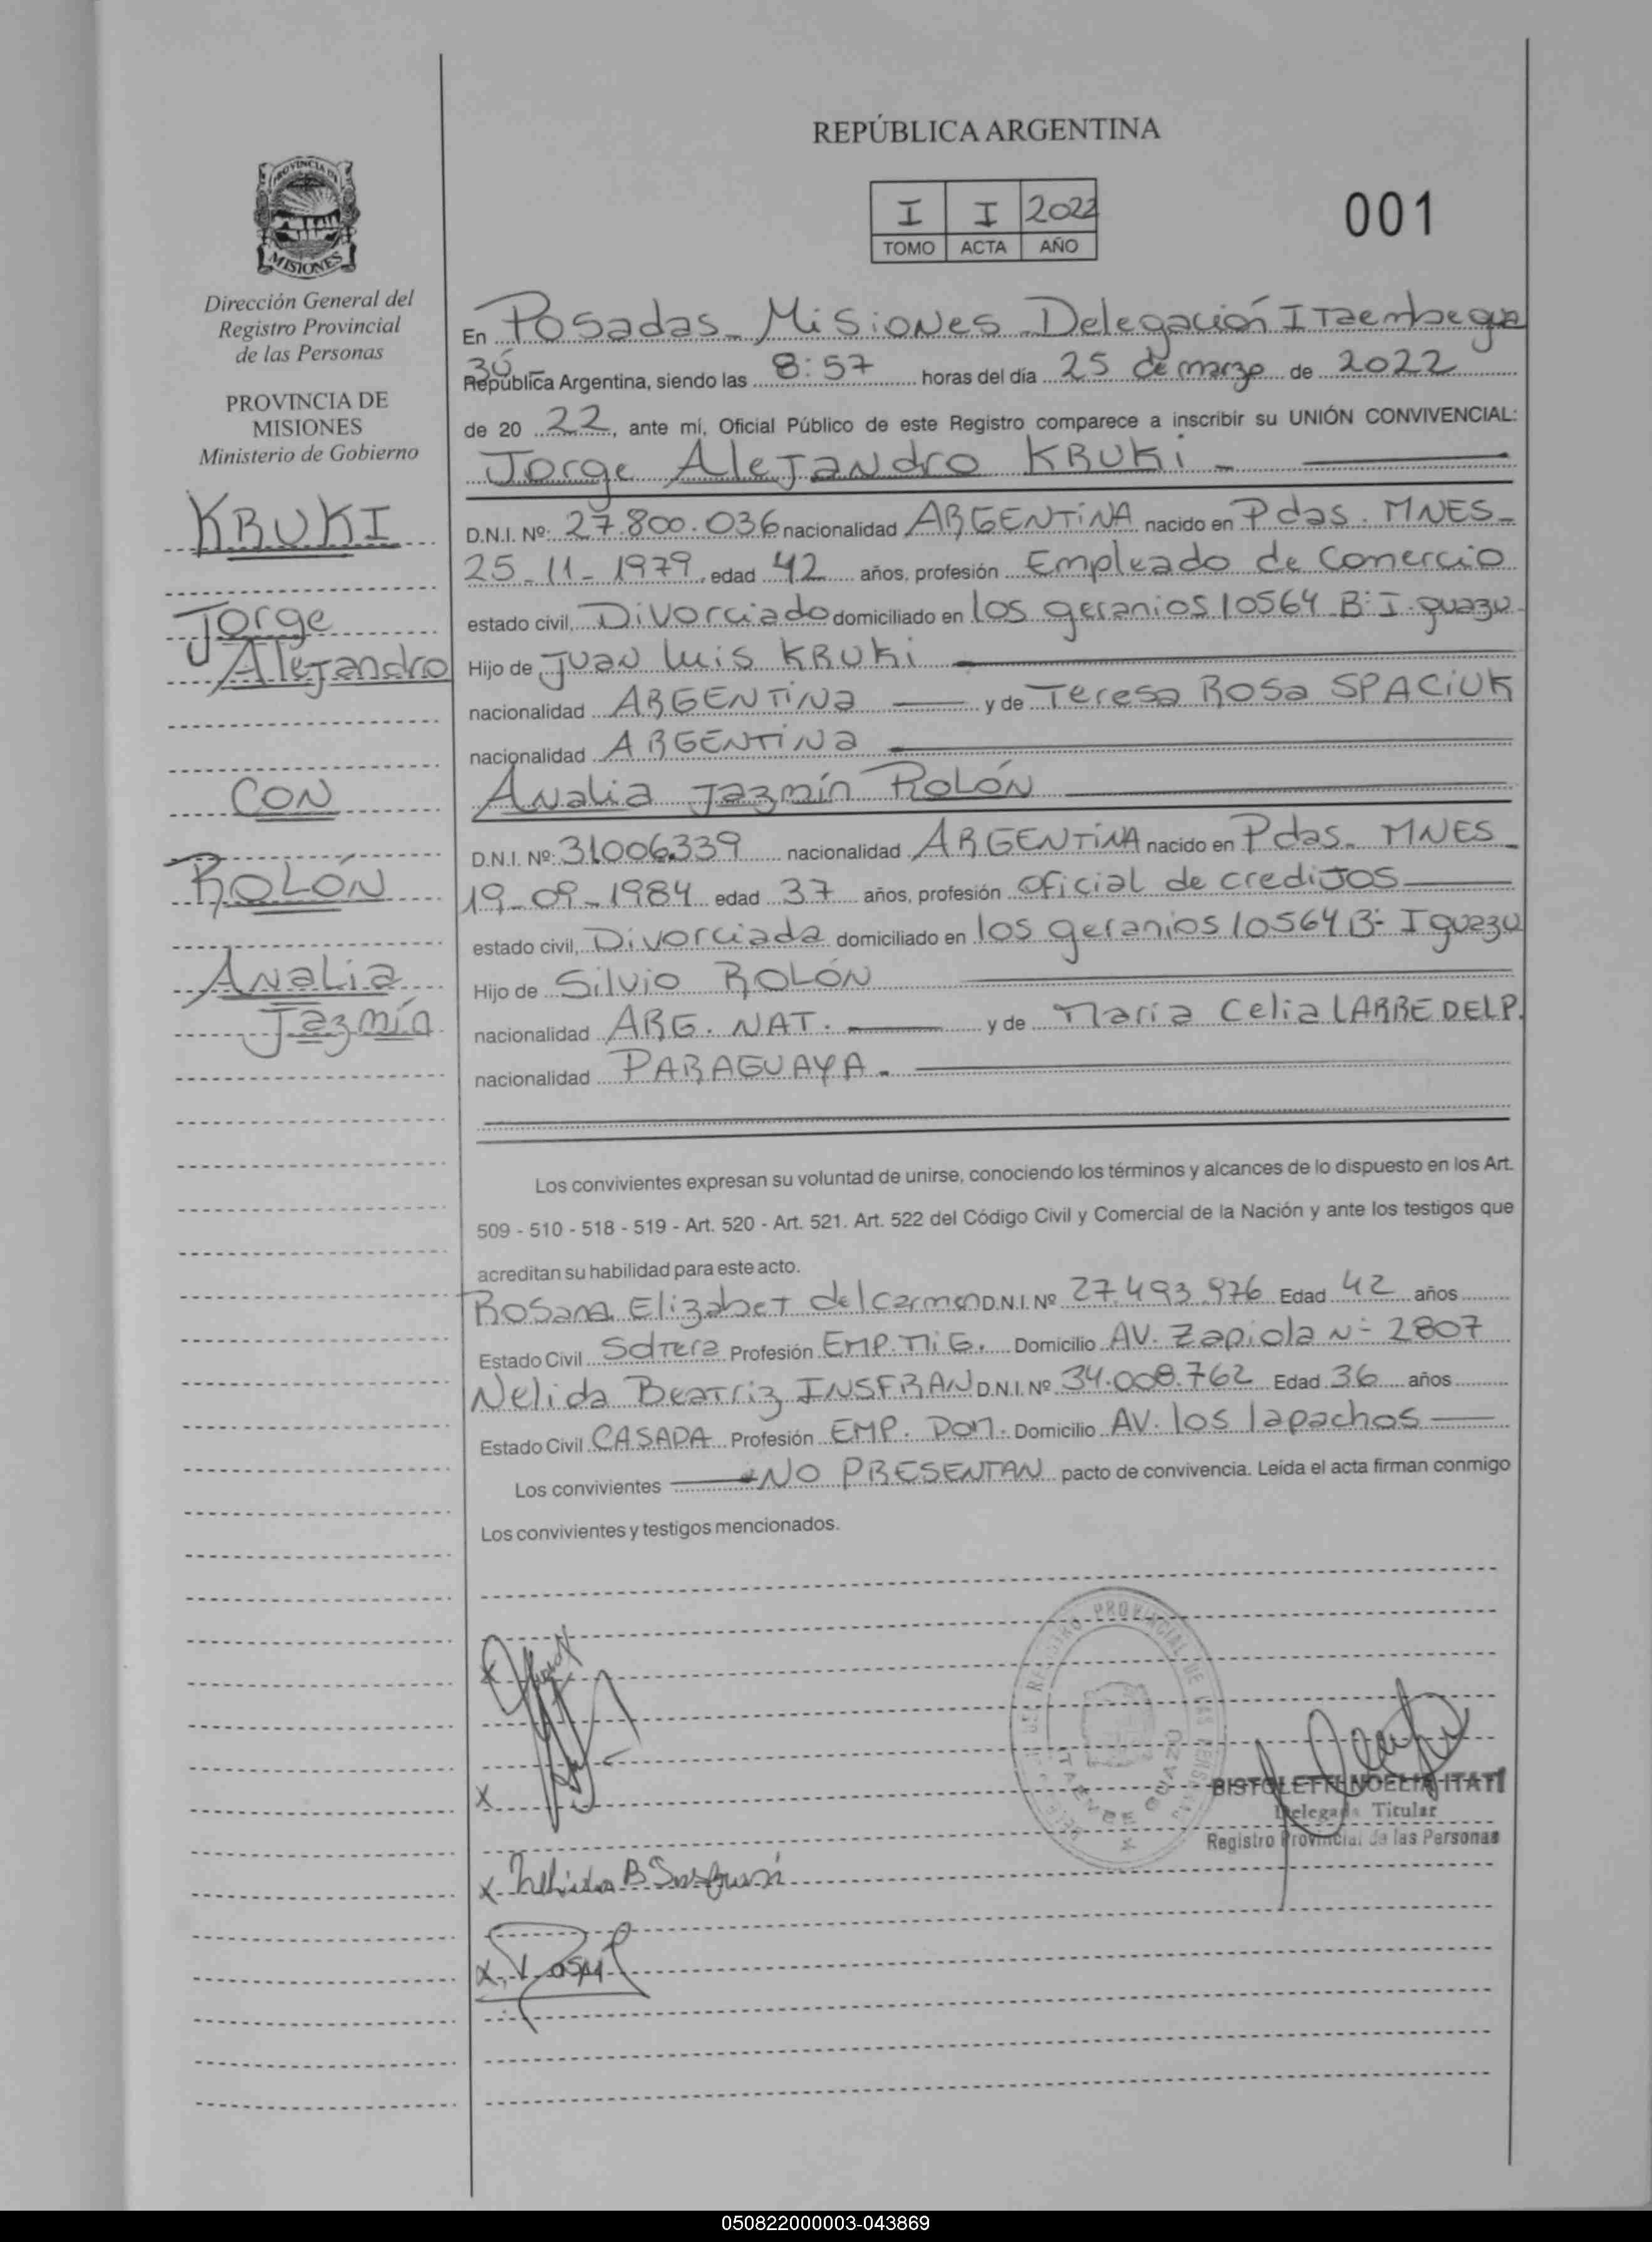 REPÚBLICA ARGENTINA
I I 2022
TOMO ACTA AÑO
001
PROVINCIA DE
MISIONES
Dirección General del
Registro Provincial
de las Personas
PROVINCIA DE
MISIONES
Ministerio de Gobierno
KRUKI
Jorge
Alejandro
CON
ROLÓN
Analia
Jazmín
En Posadas Misiones Delegación Itaembegua
zú
República Argentina, siendo las 8:57 horas del día 25 de marzo de 2022
de 20 22, ante mí, Oficial Público de este Registro comparece a inscribir su UNIÓN CONVIVENCIAL:
Jorge Alejandro KRUKi -
D.N.I. Nº: 27.800.036 nacionalidad ARGENTINA nacido en Pdas. MNES-
25-11-1979, edad 42 años, profesión Empleado de Comercio
estado civil, Divorciado domiciliado en los geranios 10564 B: I. guazu
Hijo de Juan Luis KRUKi
nacionalidad ARGENTINA y de Teresa Rosa SPACIUK
nacionalidad ARGENTINA
Analia Jazmín ROLÓN
D.N.I. Nº: 31006339 nacionalidad ARGENTINA nacido en Pdas. MNES
19-09-1984 edad 37 años, profesión Oficial de creditos
estado civil, Divorciada domiciliado en los geranios 10564 B: Iguazu
Hijo de Silvio ROLÓN
nacionalidad ARG. NAT. y de Maria Celia LARREDELP.
nacionalidad PARAGUAYA.
Los convivientes expresan su voluntad de unirse, conociendo los términos y alcances de lo dispuesto en los Art.
509 - 510 - 518 - 519 - Art. 520 - Art. 521. Art. 522 del Código Civil y Comercial de la Nación y ante los testigos que
acreditan su habilidad para este acto.
Rosana Elizabet del carmen D.N.I. Nº 27.493.976 Edad 42 años
Estado Civil Soltera Profesión EMP. Domicilio AV. Zapiola Nº 2807
Nelida Beatriz INSFRAN D.N.I. Nº 34.008.762 Edad 36 años
Estado Civil CASADA Profesión EMP. DOM. Domicilio AV. los lapachos
Los convivientes NO PRESENTAN pacto de convivencia. Leída el acta firman conmigo
Los convivientes y testigos mencionados.
REGISTRO PROVINCIAL DE LAS PERSONAS
ITAEMBE GUAZU
BISTOLETTI NOELIA ITATI
Delegada Titular
Registro Provincial de las Personas
050822000003-043869